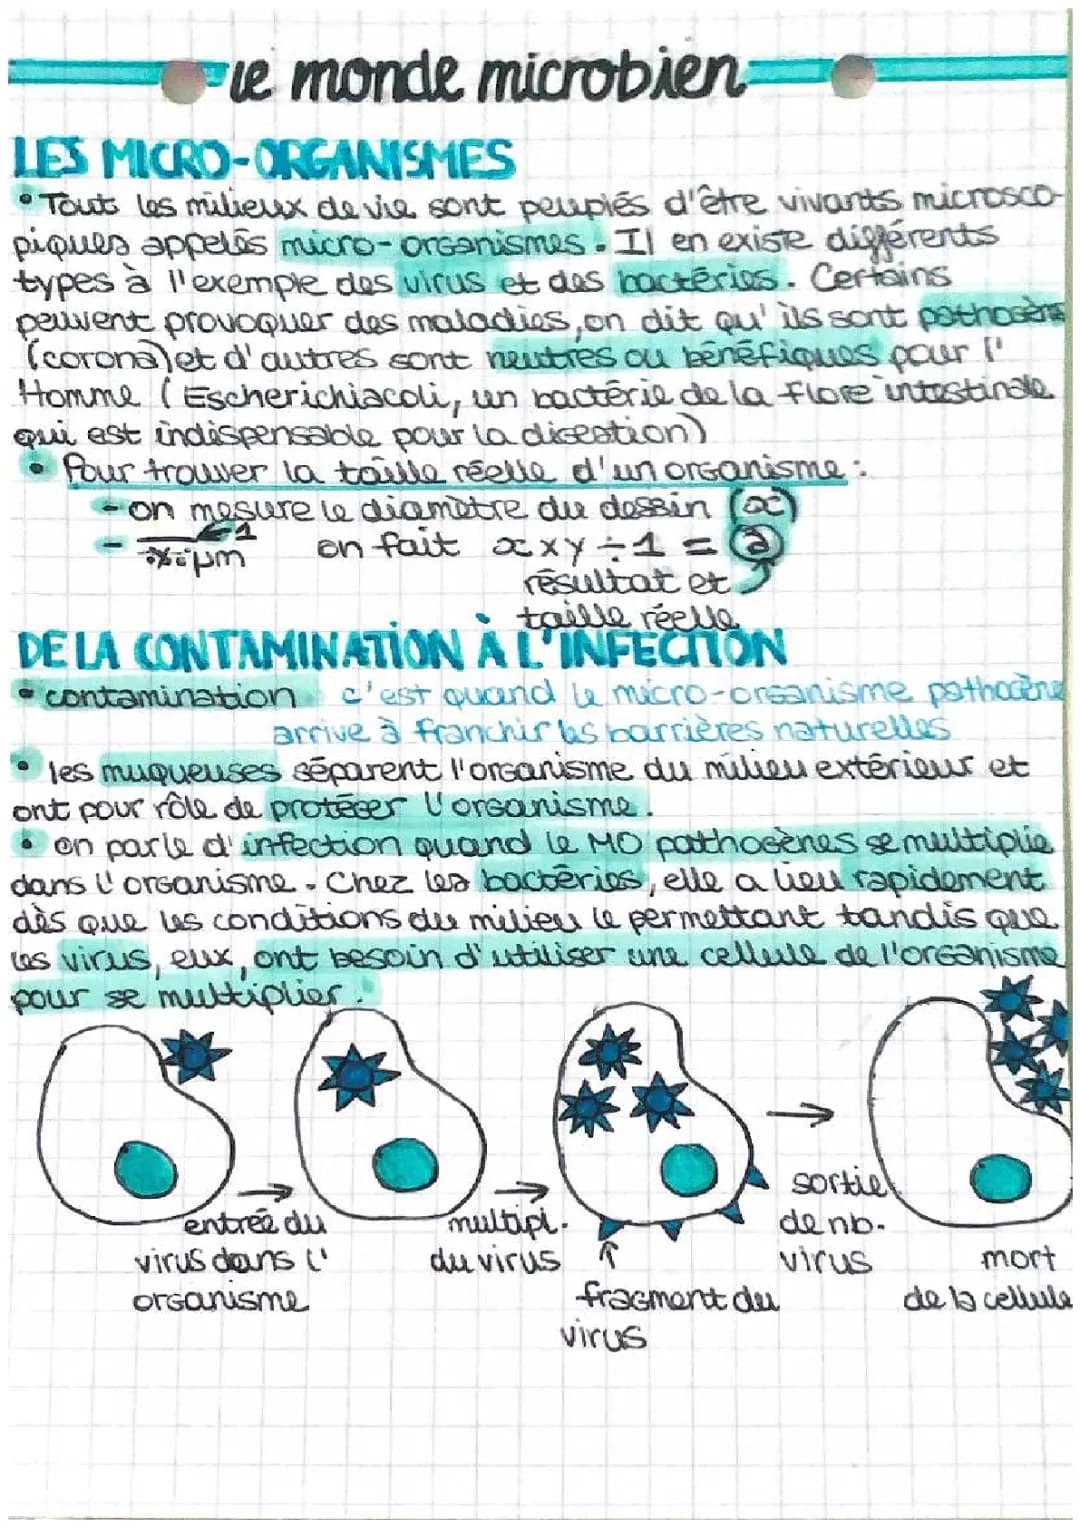 le monde microbien
LES MICRO-ORGANISMES
• Touts les milieux de vie sont peuplés d'être vivants microsco-
piques appelés micro-organismes. Il en existe différents
types à l'exemple des virus et des bactéries. Certains
peuvent provoquer des maladies, on dit qu'ils sont pathogèns
(corona) et d'autres sont neutres ou bénéfiques pour l'
Homme (Escherichiacoli, un bactérie de la flore intestinale
qui est indispensable pour la digestion)
• Pour trouver la taille réelle d'un organisme :
- on mesure le diamètre du dessin (x)
- 1
μm on fait x x y ÷ 1 = a
résultat et
taille réelle
DE LA CONTAMINATION À L'INFECTION
• contamination c'est quand le micro-organisme pathogène
arrive à franchir les barrières naturelles
• les muqueuses séparent l'organisme du milieu extérieur et
ont pour rôle de protéger l'organisme.
• on parle d'infection quand le MO pathogènes se multiplie
dans l'organisme. Chez les bactéries, elle a lieu rapidement
dès que les conditions du milieu le permettant tandis que
les virus, eux, ont besoin d'utiliser une cellule de l'organisme
pour se multiplier.
entrée du
virus dans l'
organisme
multipi.
du virus
fragment du
virus
sortie
de nb.
virus
mort
de la cellule